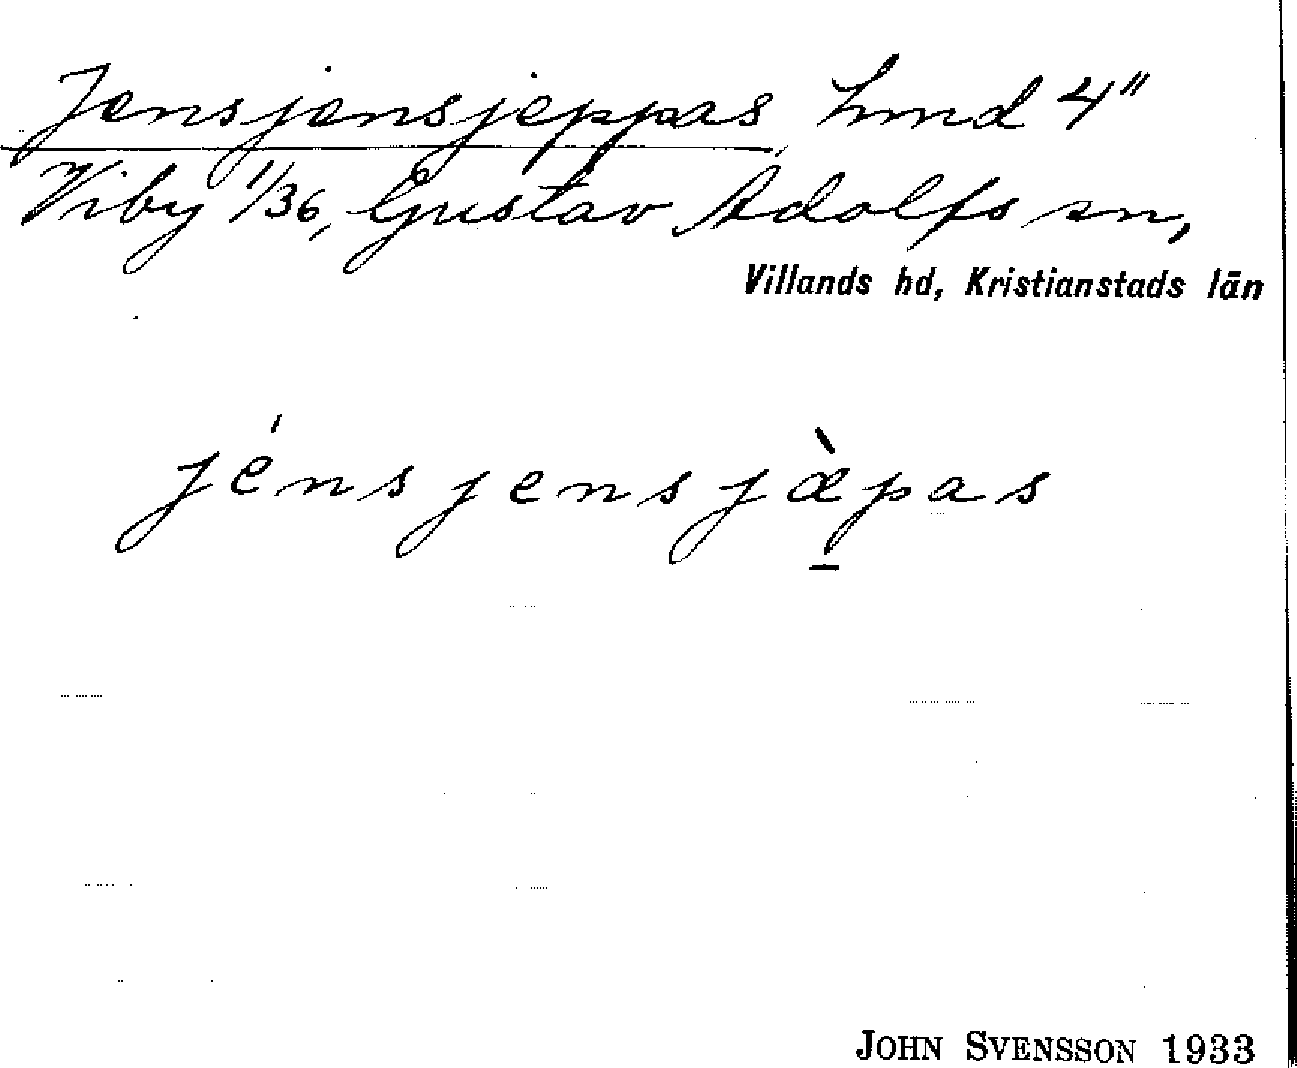 Jensjensjeppas, hmd 4"
Viby 1/36, Gustav Adolfs sn,
Villands hd, Kristianstads län
jénsjensjæ̀pas
JOHN SVENSSON 1933